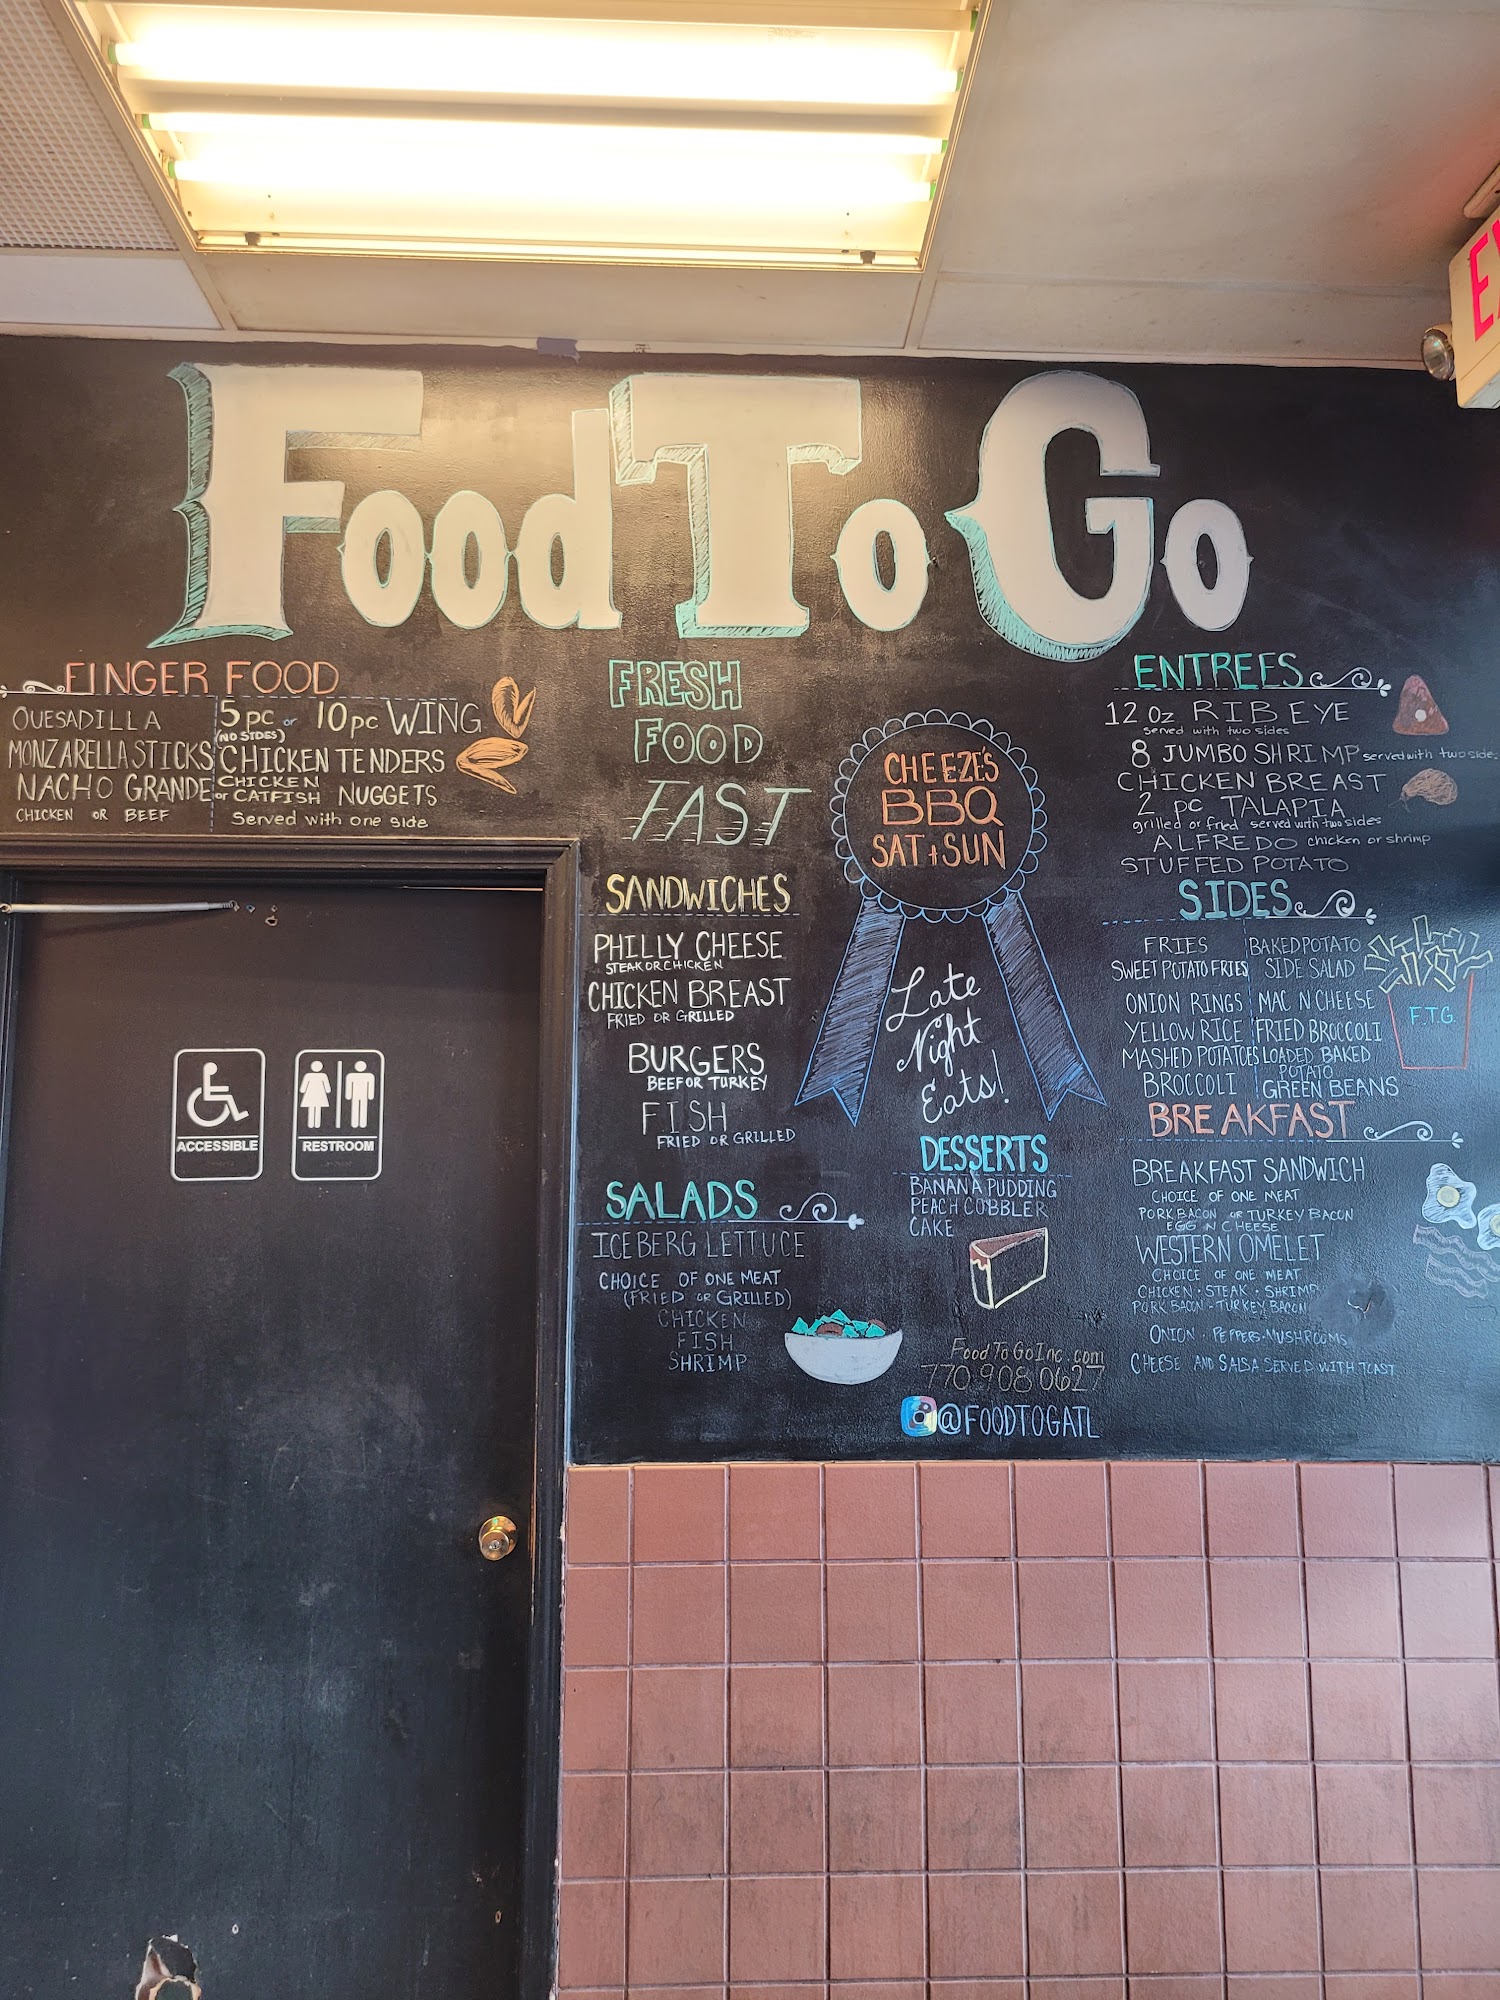 Food To Go
FINGER FOOD
QUESADILLA
MONZARELLA STICKS
NACHO GRANDE
CHICKEN OR BEEF
5 pc or 10 pc WING
(NO SIDES)
CHICKEN TENDERS
CHICKEN
or CATFISH NUGGETS
Served with one side
FRESH
FOOD
FAST
SANDWICHES
PHILLY CHEESE
STEAK OR CHICKEN
CHICKEN BREAST
FRIED OR GRILLED
BURGERS
BEEF OR TURKEY
FISH
FRIED OR GRILLED
SALADS
ICEBERG LETTUCE
CHOICE OF ONE MEAT
(FRIED OR GRILLED)
CHICKEN
FISH
SHRIMP
CHEEZE'S
BBQ
SAT + SUN
Late
Night
Eats!
DESSERTS
BANANA PUDDING
PEACH COBBLER
CAKE
FoodToGoInc.com
770 908 0627
@FOODTOGATL
ENTREES
12 Oz RIB EYE
served with two sides
8 JUMBO SHRIMP served with two sides
CHICKEN BREAST
2 pc TALAPIA
grilled or fried served with two sides
ALFREDO chicken or shrimp
STUFFED POTATO
SIDES
FRIES
SWEET POTATO FRIES
ONION RINGS
YELLOW RICE
MASHED POTATOES
BROCCOLI
BAKED POTATO
SIDE SALAD
MAC N CHEESE
FRIED BROCCOLI
LOADED BAKED
POTATO
GREEN BEANS
F.T.G.
BREAKFAST
BREAKFAST SANDWICH
CHOICE OF ONE MEAT
PORK BACON or TURKEY BACON
EGG N CHEESE
WESTERN OMELET
CHOICE OF ONE MEAT
CHICKEN · STEAK · SHRIMP
PORK BACON · TURKEY BACON
ONION · PEPPERS · MUSHROOMS
CHEESE AND SALSA SERVED WITH TOAST
ACCESSIBLE
RESTROOM